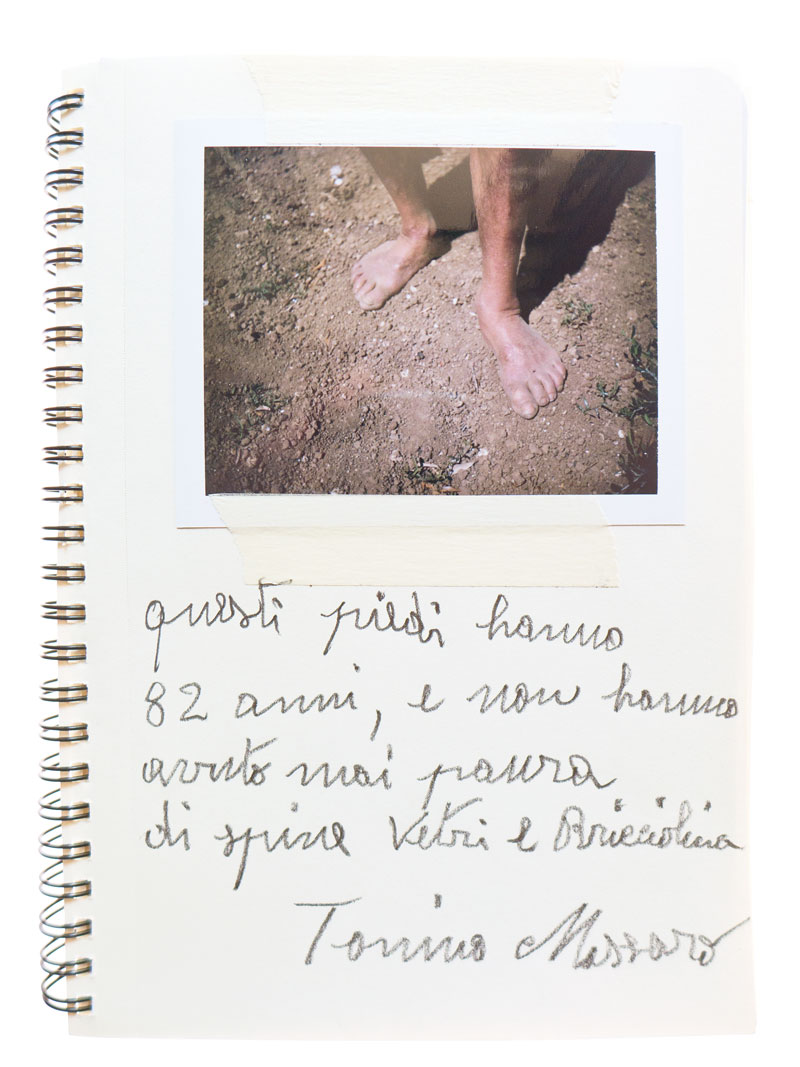 questi piedi hanno
82 anni, e non hanno
avuto mai paura
di spine vetri e Bricciolina
Tonino Massaro